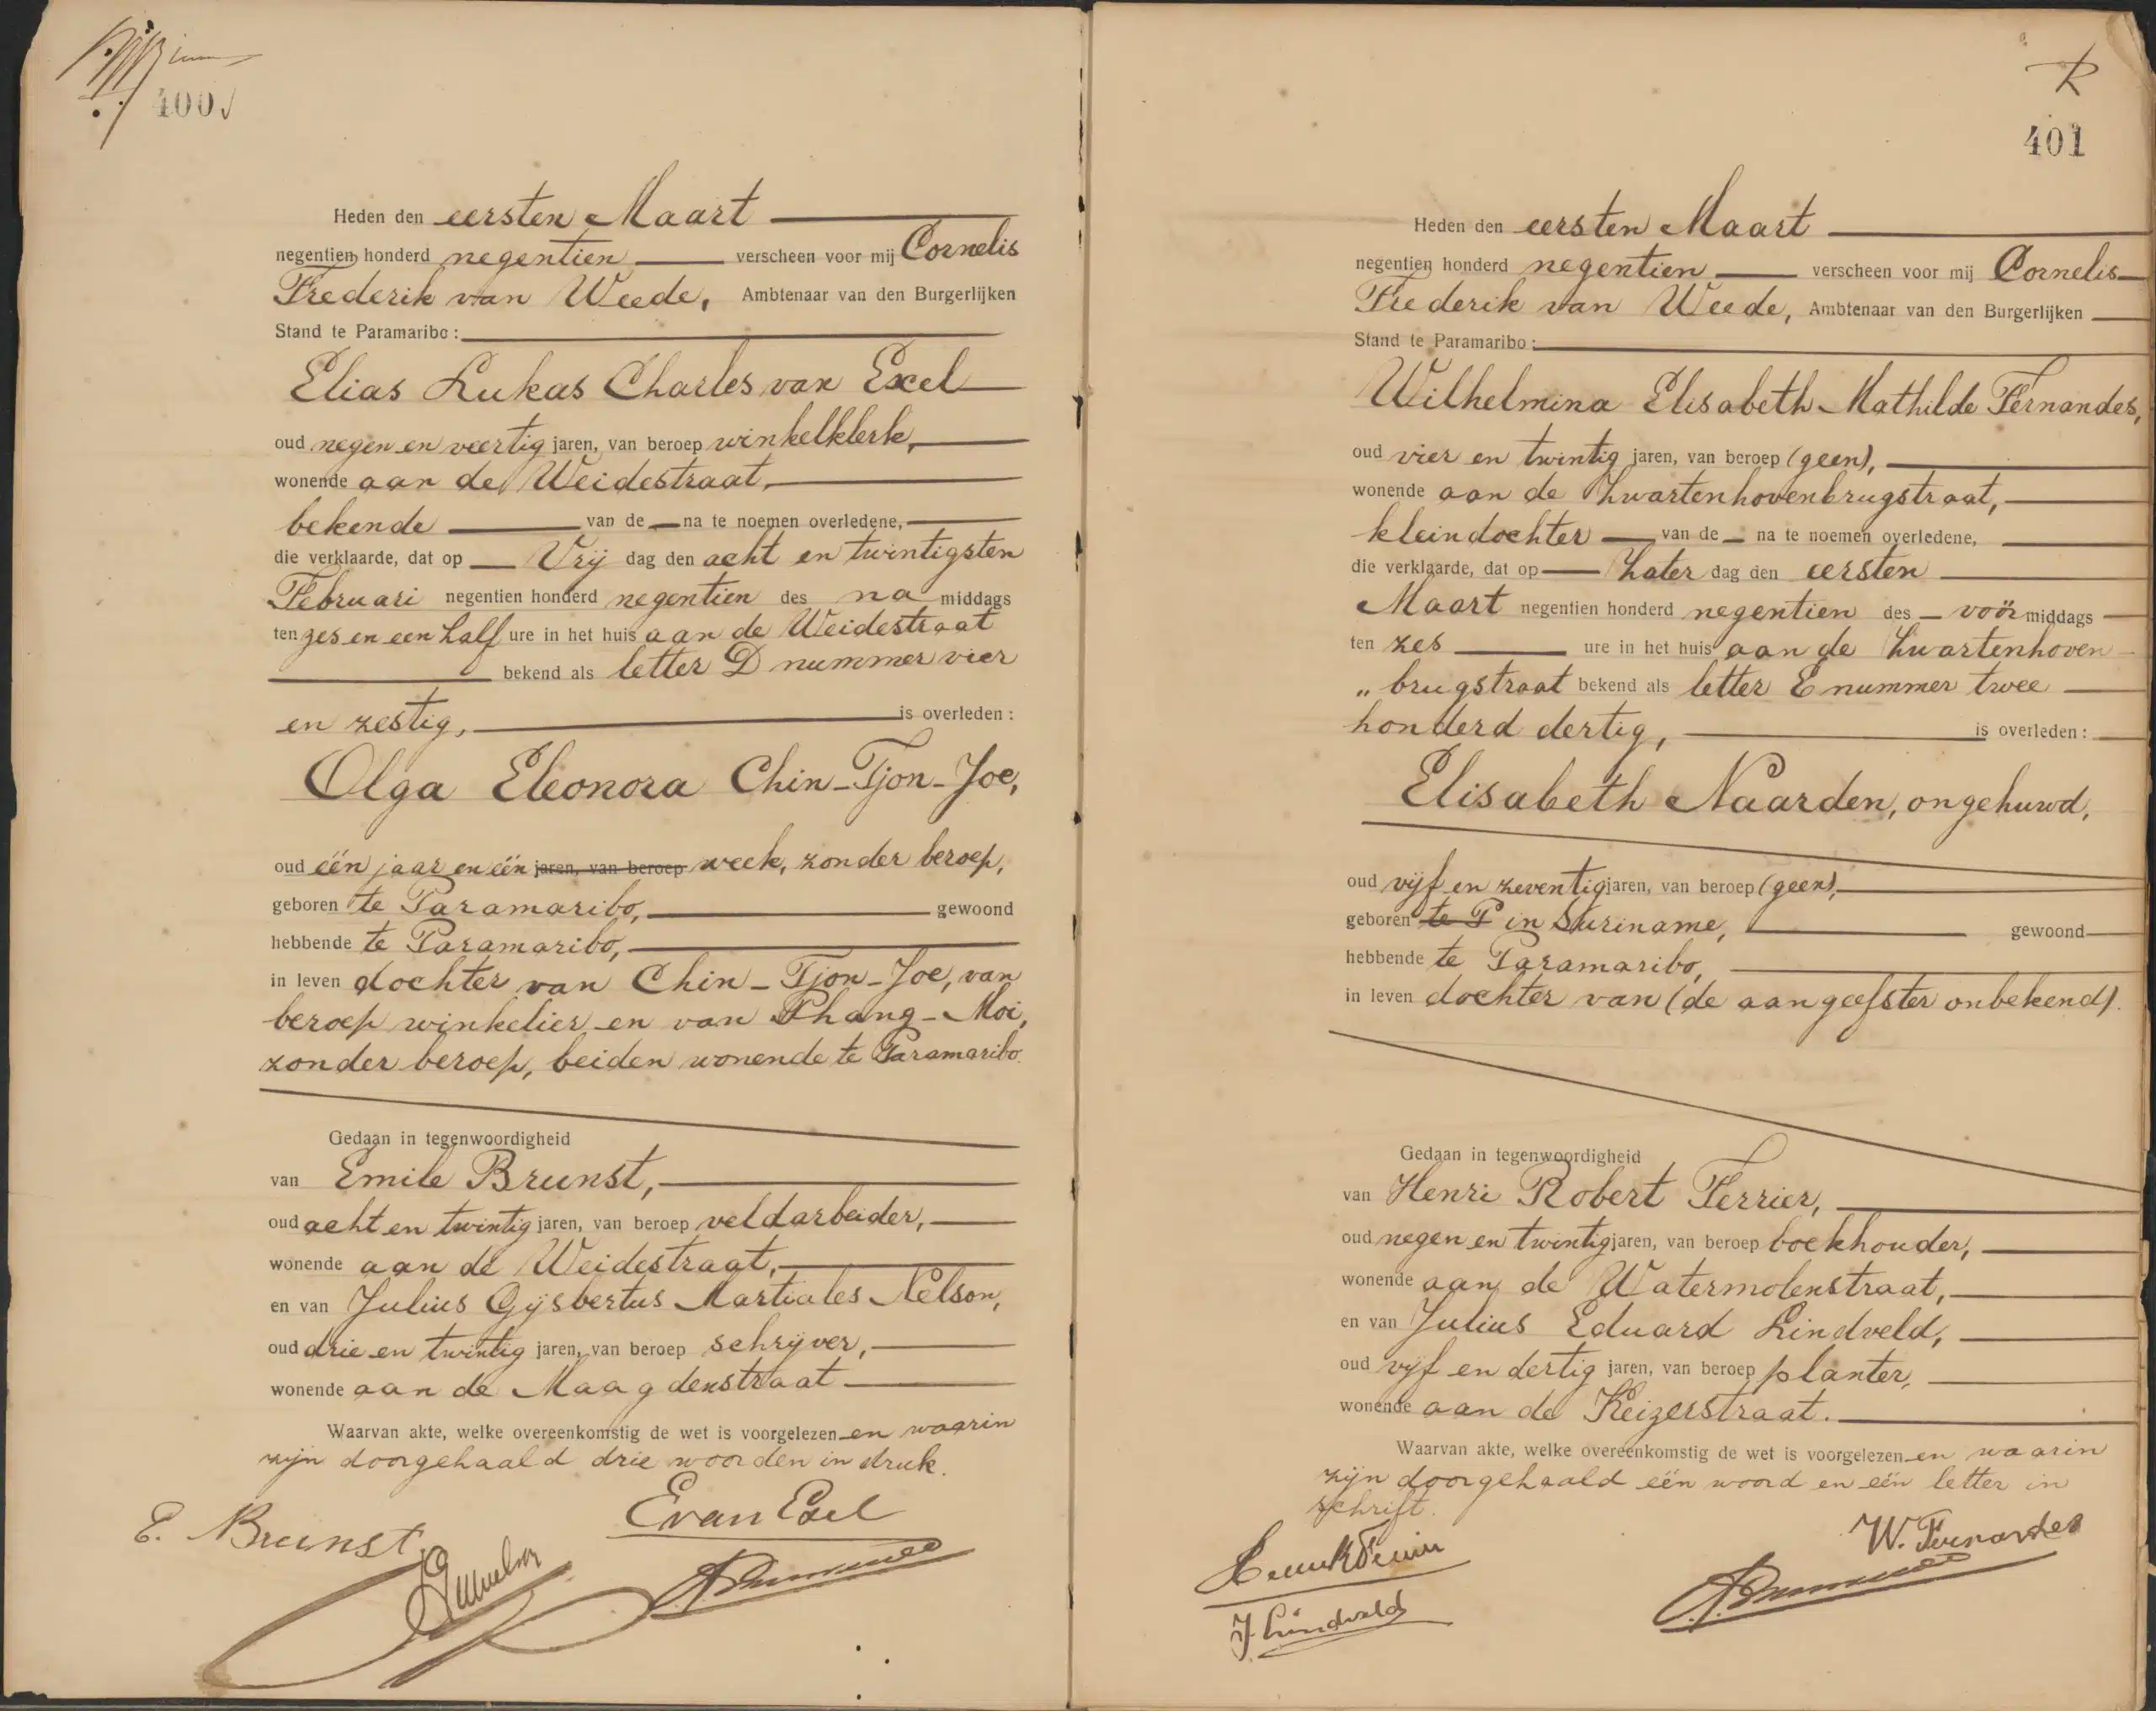 400
Heden den eersten Maart
negentien honderd negentien verscheen voor mij Cornelis
Frederik van Weede, Ambtenaar van den Burgerlijken
Stand te Paramaribo:
Elias Lukas Charles van Exel
oud negen en veertig jaren, van beroep winkelklerk,
wonende aan de Weidestraat,
bekende van de na te noemen overledene,
die verklaarde, dat op Vrij dag den acht en twintigsten
Februari negentien honderd negentien des na middags
ten zes en een half ure in het huis aan de Weidestraat
bekend als letter D nummer vier
en zestig, is overleden:
Olga Eleonora Chin-Tjon-Joe,
oud één jaar en één jaren, van beroep week, zonder beroep,
geboren te Paramaribo, gewoond
hebbende te Paramaribo,
in leven dochter van Chin-Tjon-Joe, van
beroep winkelier en van Phang-Moi,
zonder beroep, beiden wonende te Paramaribo.
Gedaan in tegenwoordigheid
van Emile Brunst,
oud acht en twintig jaren, van beroep veldarbeider,
wonende aan de Weidestraat,
en van Julius Gijsbertus Martiales Nelson,
oud drie en twintig jaren, van beroep schrijver,
wonende aan de Maagdenstraat
Waarvan akte, welke overeenkomstig de wet is voorgelezen en waarin
zijn doorgehaald drie woorden in druk.
E van Exel
E. Brunst
401
Heden den eersten Maart
negentien honderd negentien verscheen voor mij Cornelis
Frederik van Weede, Ambtenaar van den Burgerlijken
Stand te Paramaribo:
Wilhelmina Elisabeth Mathilde Fernandes,
oud vier en twintig jaren, van beroep (geen),
wonende aan de Zwartenhovenbrugstraat,
kleindochter van de na te noemen overledene,
die verklaarde, dat op Zater dag den eersten
Maart negentien honderd negentien des voör middags
ten zes ure in het huis aan de Zwartenhoven
„brugstraat bekend als letter E nummer twee
honderd dertig, is overleden:
Elisabeth Naarden, ongehuwd,
oud vijf en zeventig jaren, van beroep (geen),
geboren te P in Suriname, gewoond
hebbende te Paramaribo,
in leven dochter van (de aangeefster onbekend).
Gedaan in tegenwoordigheid
van Henri Robert Ferrier,
oud negen en twintig jaren, van beroep boekhouder,
wonende aan de Watermolenstraat,
en van Julius Eduard Lindveld,
oud vijf en dertig jaren, van beroep planter,
wonende aan de Keizerstraat.
Waarvan akte, welke overeenkomstig de wet is voorgelezen en waarin
zijn doorgehaald één woord en één letter in
schrift.
W. Fernandes
J. Lindveld